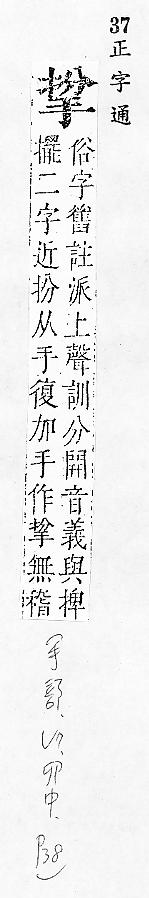 37
正字通
俗字舊註派上聲訓分開音義與捭
擺二字近扮从手復加手作無稽
手部、卯中、P38